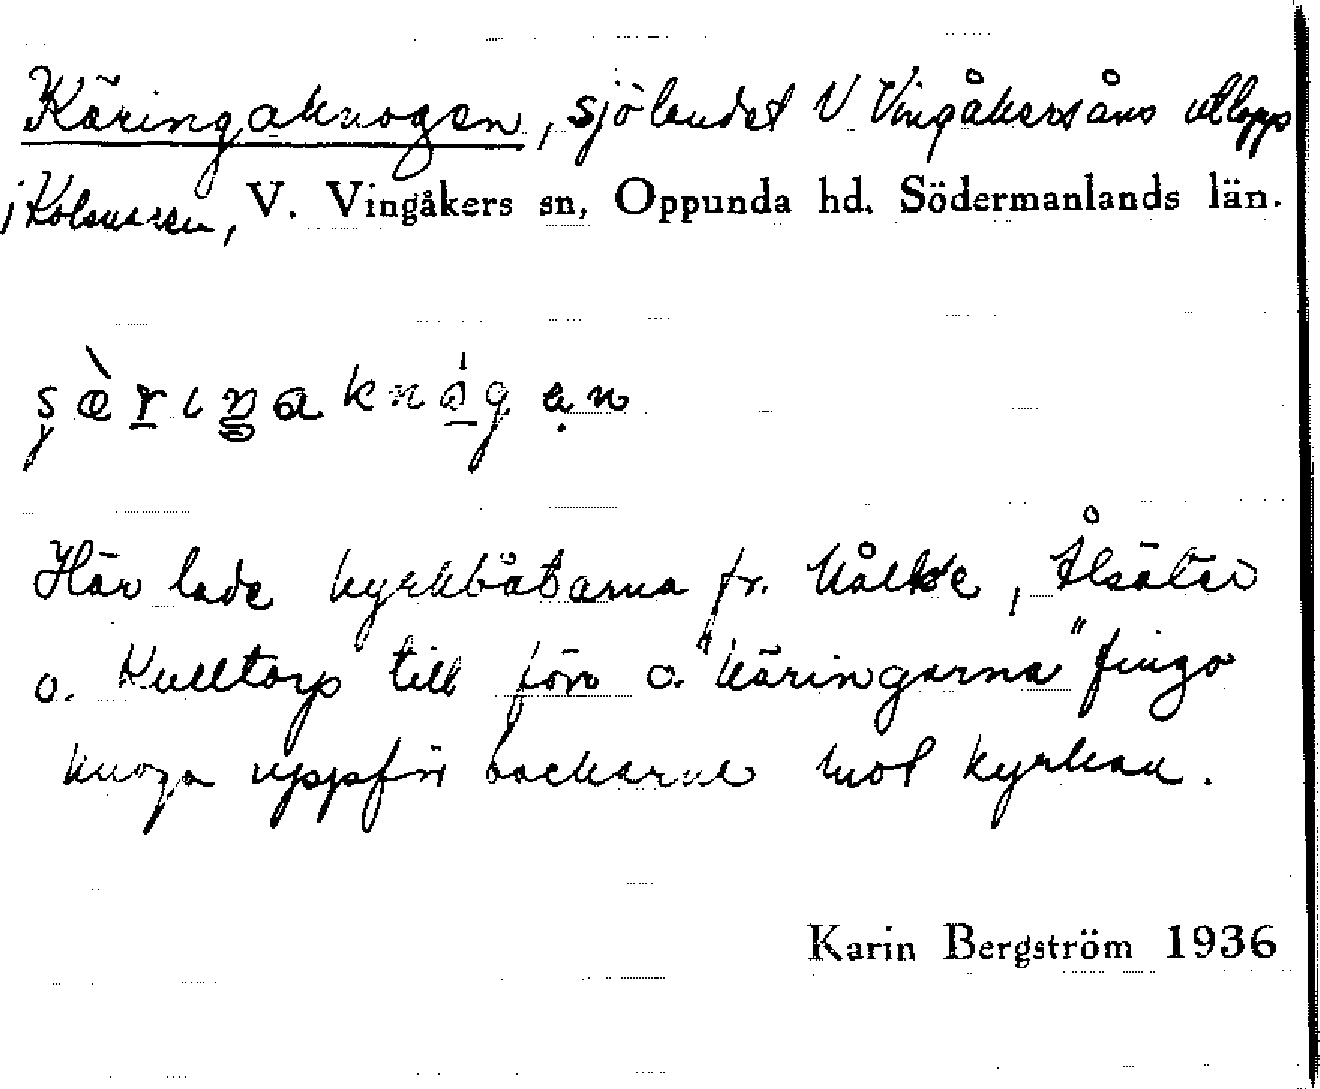 Käringaknogen, sjölandet V Vingåkersåns utlopp
i Kolsnaren, V. Vingåkers sn, Oppunda hd. Södermanlands län.
Här lade kyrkbåtarna fr. Kålbke, Ålsäter
o. Kulltorp till förr o. "käringarna" fingo
knoga uppför backarne mot kyrkan.
Karin Bergström 1936